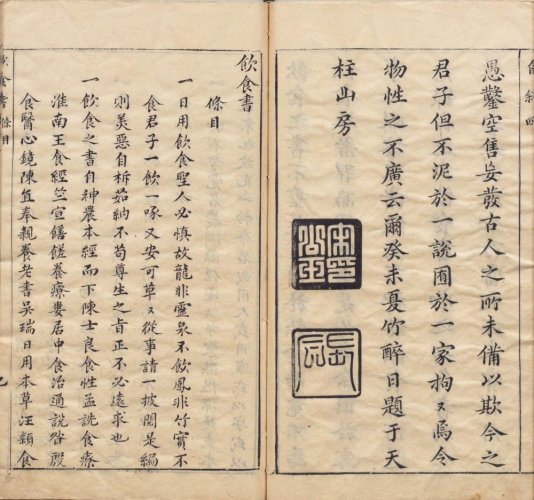 愚鑿空售妄發古人之所未備以欺今之
君子但不泥於一說囿於一家拘〻焉令
物性之不廣云爾癸未夏竹醉日題于天
柱山房
飲食書
條目
一日用飲食聖人必慎故龍非靈泉不飲鳳非竹實不
食君子一飲一啄又安可草〻從事請一披閱是編
則美惡自析茹納不苟尊生之旨正不必遠求也
一飲食之書自神農本經而下陳士良食性孟詵食療
淮南王食經竺宣膳饈養療婁居中食治通說昝殷
食醫心鏡陳直奉親養老書吳瑞日用本草汪穎食
飲食書 條目